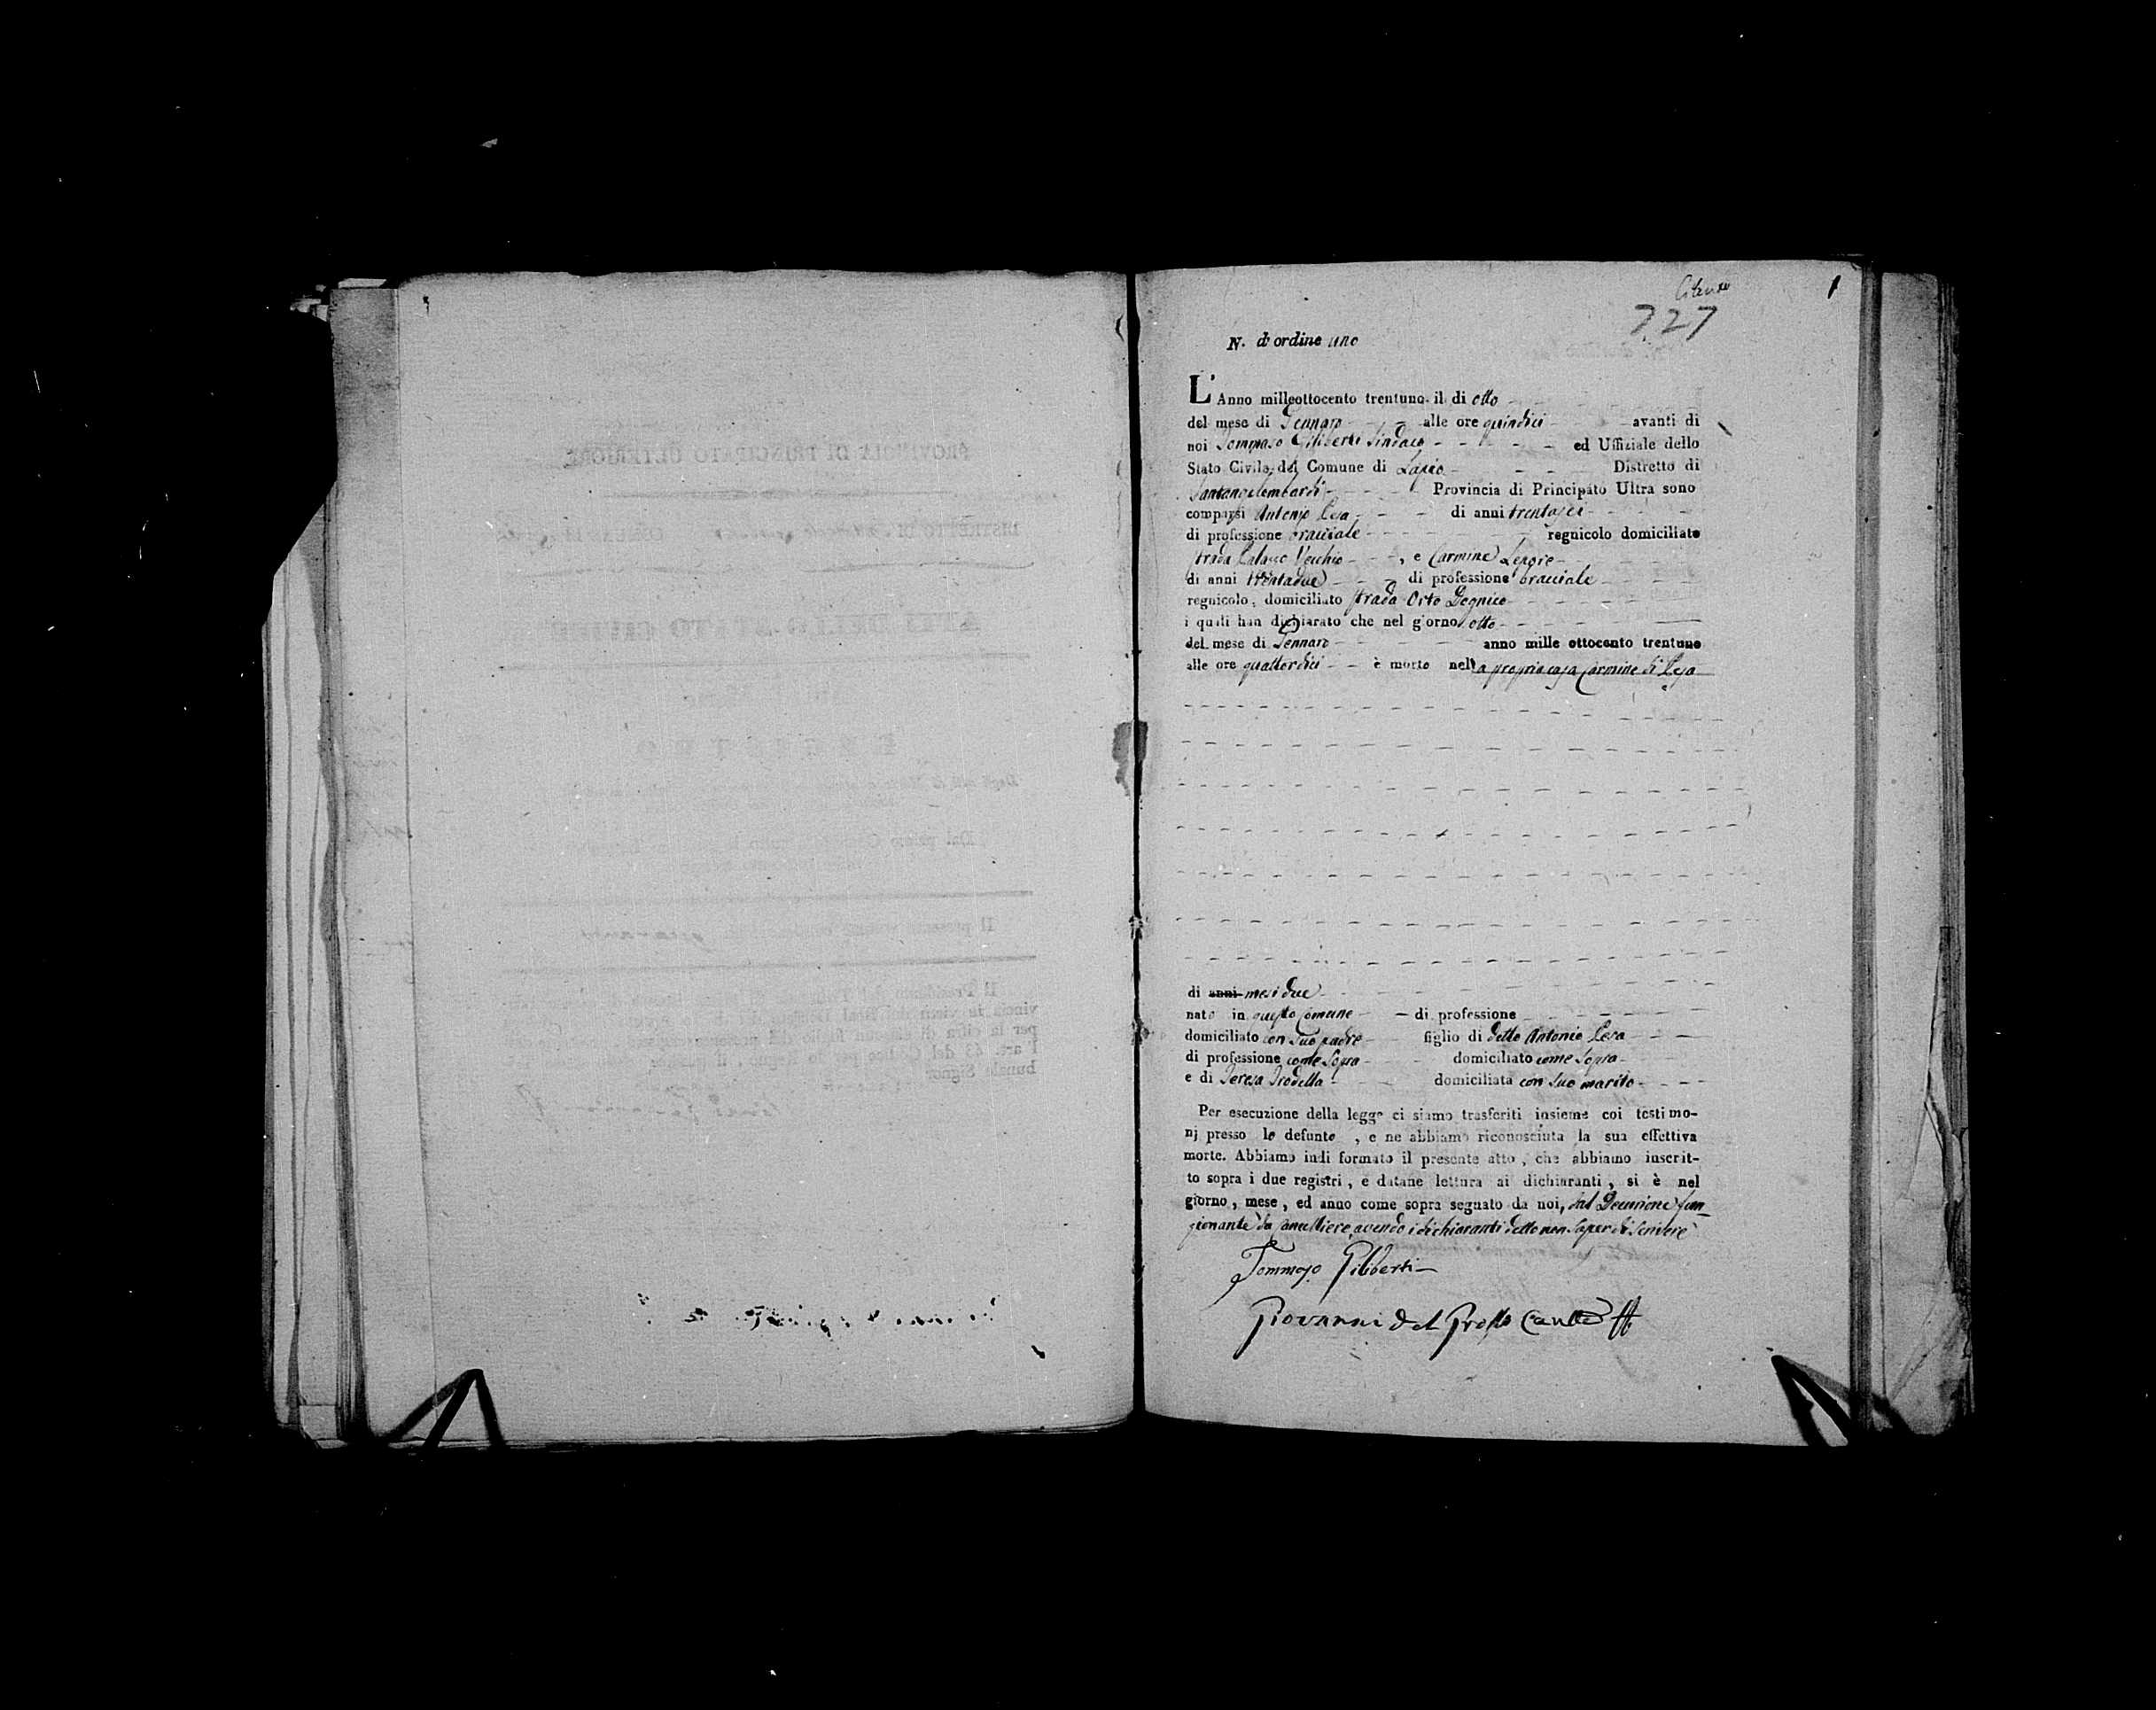 1
727
N. d'ordine uno
L'Anno milleottocento trentuno il di otto
del mese di Gennaro alle ore quindici avanti di
noi Tommaso Giliberti Sindaco ed Uffiziale dello
Stato Civile del Comune di Lapio Distretto di
Santangelombardi Provincia di Principato Ultra sono
comparsi Antonio Lesa di anni trentasei
di professione bracciale regnicolo domiciliato
strada Palazzo Vecchio , e Carmine Lepore
di anni trentadue di professione bracciale
regnicolo, domiciliato strada Orto
i quali han dichiarato che nel giorno otto
del mese di Gennaro anno mille ottocento trentuno
alle ore quattordici è morto nella propria casa Carmine di Lesa
di anni mesi due
nato in questo Comune di professione
domiciliato con suo padre figlio di detto Antonio Lesa
di professione come sopra domiciliato come sopra
e di Teresa domiciliata con suo marito
Per esecuzione della legge ci siamo trasferiti insieme coi testimo-
nj presso lo defunto , e ne abbiamo riconosciuta la sua effettiva
morte. Abbiamo indi formato il presente atto , che abbiamo inscrit-
to sopra i due registri , e datane lettura ai dichiaranti , si è nel
giorno , mese , ed anno come sopra segnato da noi, dal Decurione fun
zionante da Cancelliere, avendo i dichiaranti detto non saper di scrivere
Tommaso Giliberti
Giovanni del Grosso